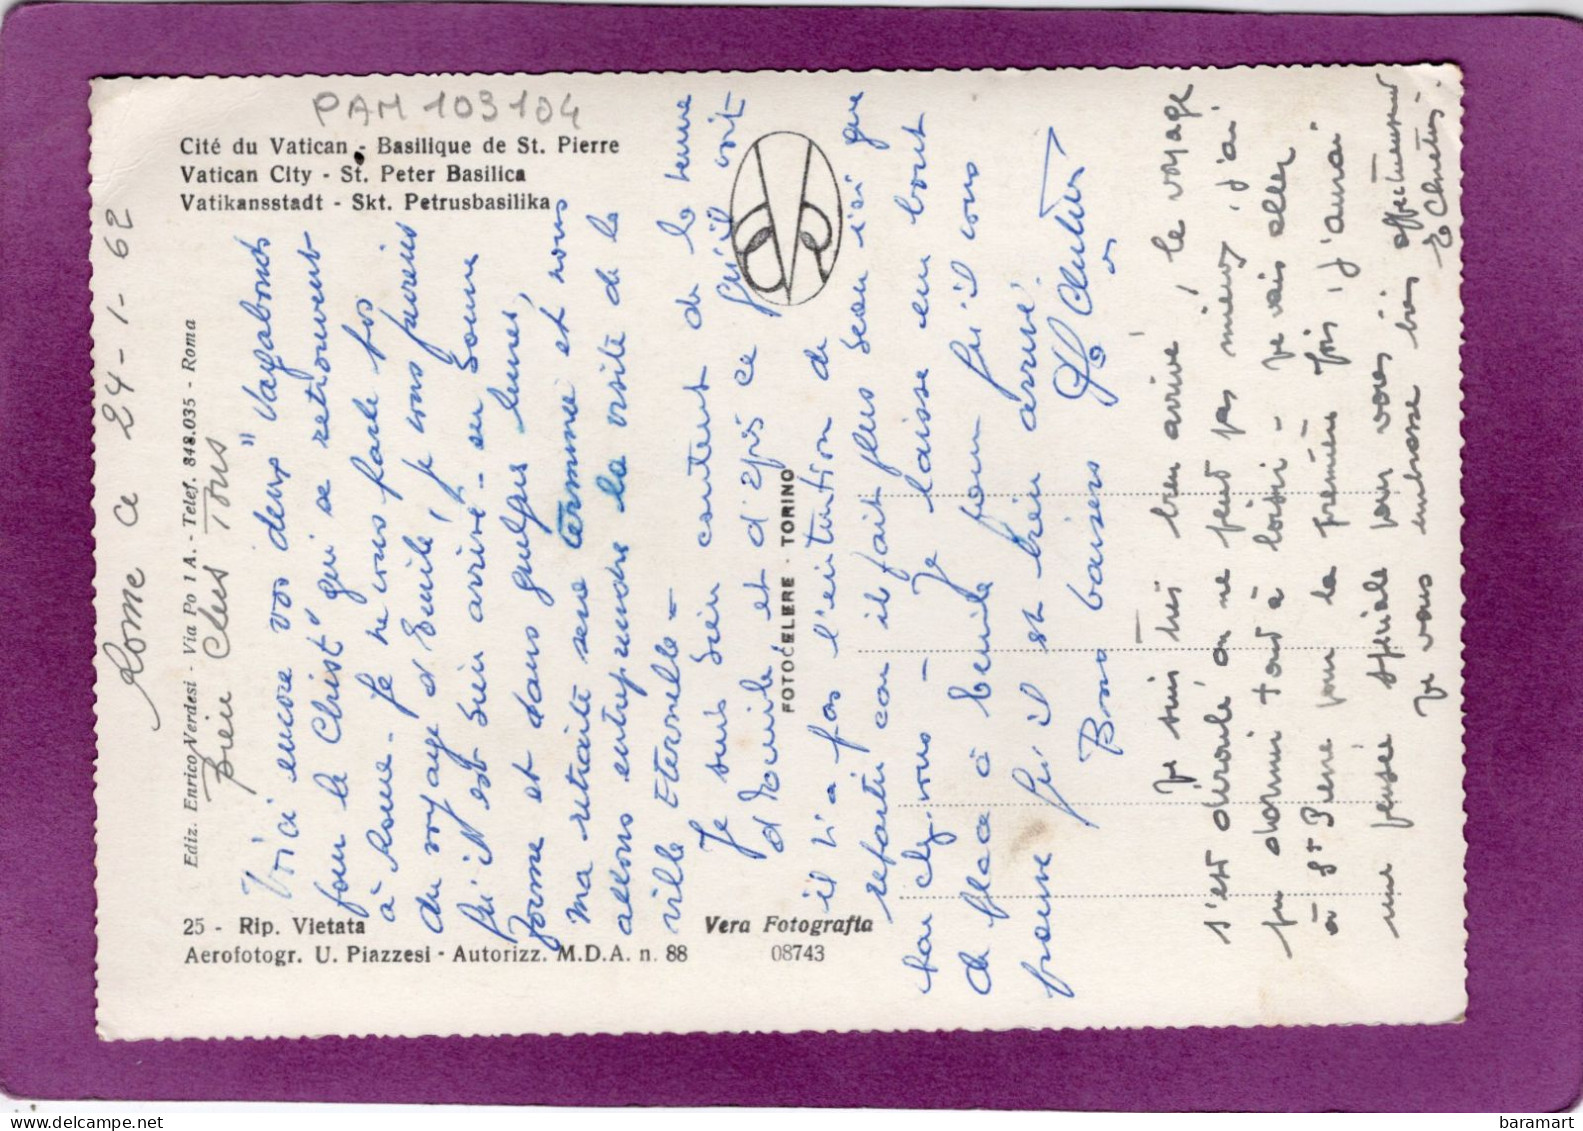 PAM 103104
Cité du Vatican - Basilique de St. Pierre
Vatican City - St. Peter Basilica
Vatikansstadt - Skt. Petrusbasilika
Ediz. Enrico Verdesi - Via Po 1 A. - Telef. 848.035 - Roma
25 - Rip. Vietata
Aerofotogr. U. Piazzesi - Autorizz. M.D.A. n. 88
Vera Fotografia
08743
FOTOCELERE - TORINO
Rome ce 24-1-62
Bien Chers Tous
Voici encore vos deux "Vagabonds
pour le Christ" qui se retrouvent
à Rome - Je ne vous parle pas
du voyage d'Emile, je vous
qu'il est bien arrivé - en bonne
forme et dans quelques heures,
ma retraite sera terminée et nous
allons entreprendre la visite de la
ville Eternelle -
Je suis bien content de la venue
d'Emile et d'après ce qu'il dit
il n'a pas l'intention de
repartir car il fait plus beau ici que
chez vous - Je laisse un bout
de place à Emile pour qu'il vous
prouve qu'il est bien arrivé.
Bons baisers
Je suis très bien arrivé, le voyage
s'est déroulé on ne peut pas mieux, j'ai
pu dormi tout à loisir - je vais aller
à St Pierre pour la première fois, j'aurai
une pensée spéciale pour vous
Je vous embrasse bien affectueusement